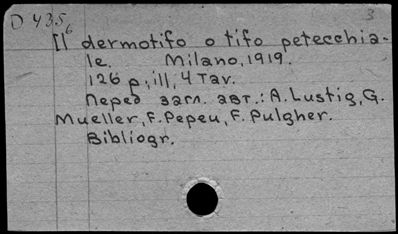 D 435 3
6
Il dermotifo o tifo petecchia-
le. Milano, 1919.
126 p, ill, 4 Tav.
Перед загл. авт.: A. Lustig, G.
Mueller, F. Pepeu, F. Pulgher.
Bibliogr.